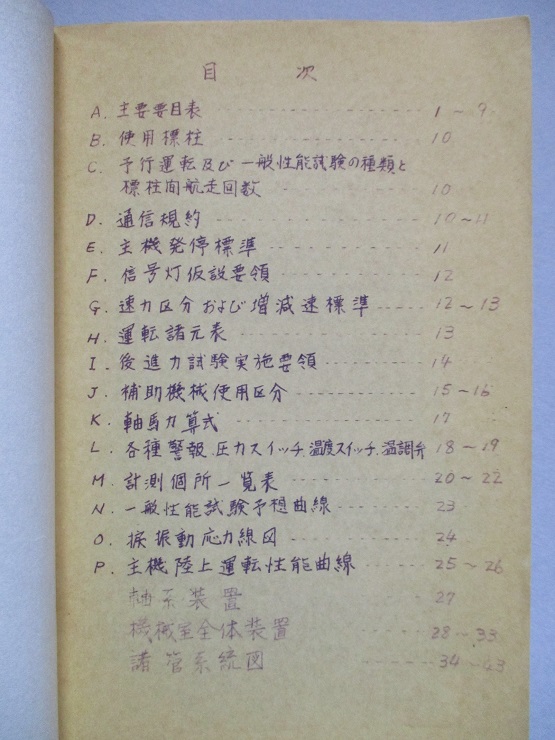 目 次
A. 主要要目表 1～9
B. 使用標柱 10
C. 予行運転及び一般性能試験の種類と
標柱間航走回数 10
D. 通信規約 10～11
E. 主機発停標準 11
F. 信号灯仮設要領 12
G. 速力区分および増減速標準 12～13
H. 運転諸元表 13
I. 後進力試験実施要領 14
J. 補助機械使用区分 15～16
K. 軸馬力算式 17
L. 各種警報、圧力スイッチ、温度スイッチ、温調弁 18～19
M. 計測個所一覧表 20～22
N. 一般性能試験予想曲線 23
O. 捩振動応力線図 24
P. 主機陸上運転性能曲線 25～26
軸系装置 27
機械室全体装置 28～33
諸管系統図 34～43